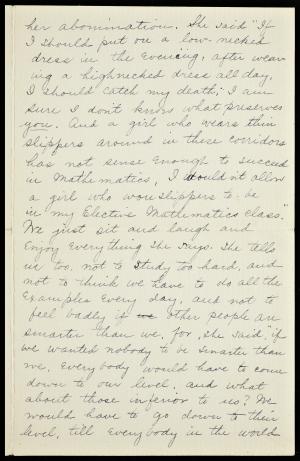 her abomination. She said "If
I should put on a low-necked
dress in the evening, after wear-
ing a highnecked dress all day,
I should catch my death; I am
sure I don't know what preserves
you. And a girl who wears thin
slippers around in these corridors
has not sense enough to succeed
in Mathematics, I wouldn't allow
a girl who won slippers to be
in my Elective Mathematics class."
We just sit and laugh and
enjoy everything she says. She tells
us too, not to study too hard, and
not to think we have to do all the
examples every day, and not to
feel badly if we other people are
smarter than we, for, she said "if
we wanted nobody to be smarter than
we, everybody would have to come
down to our level, and what
about those inferior to us? We
would have to go down to their
level, till everybody in the world